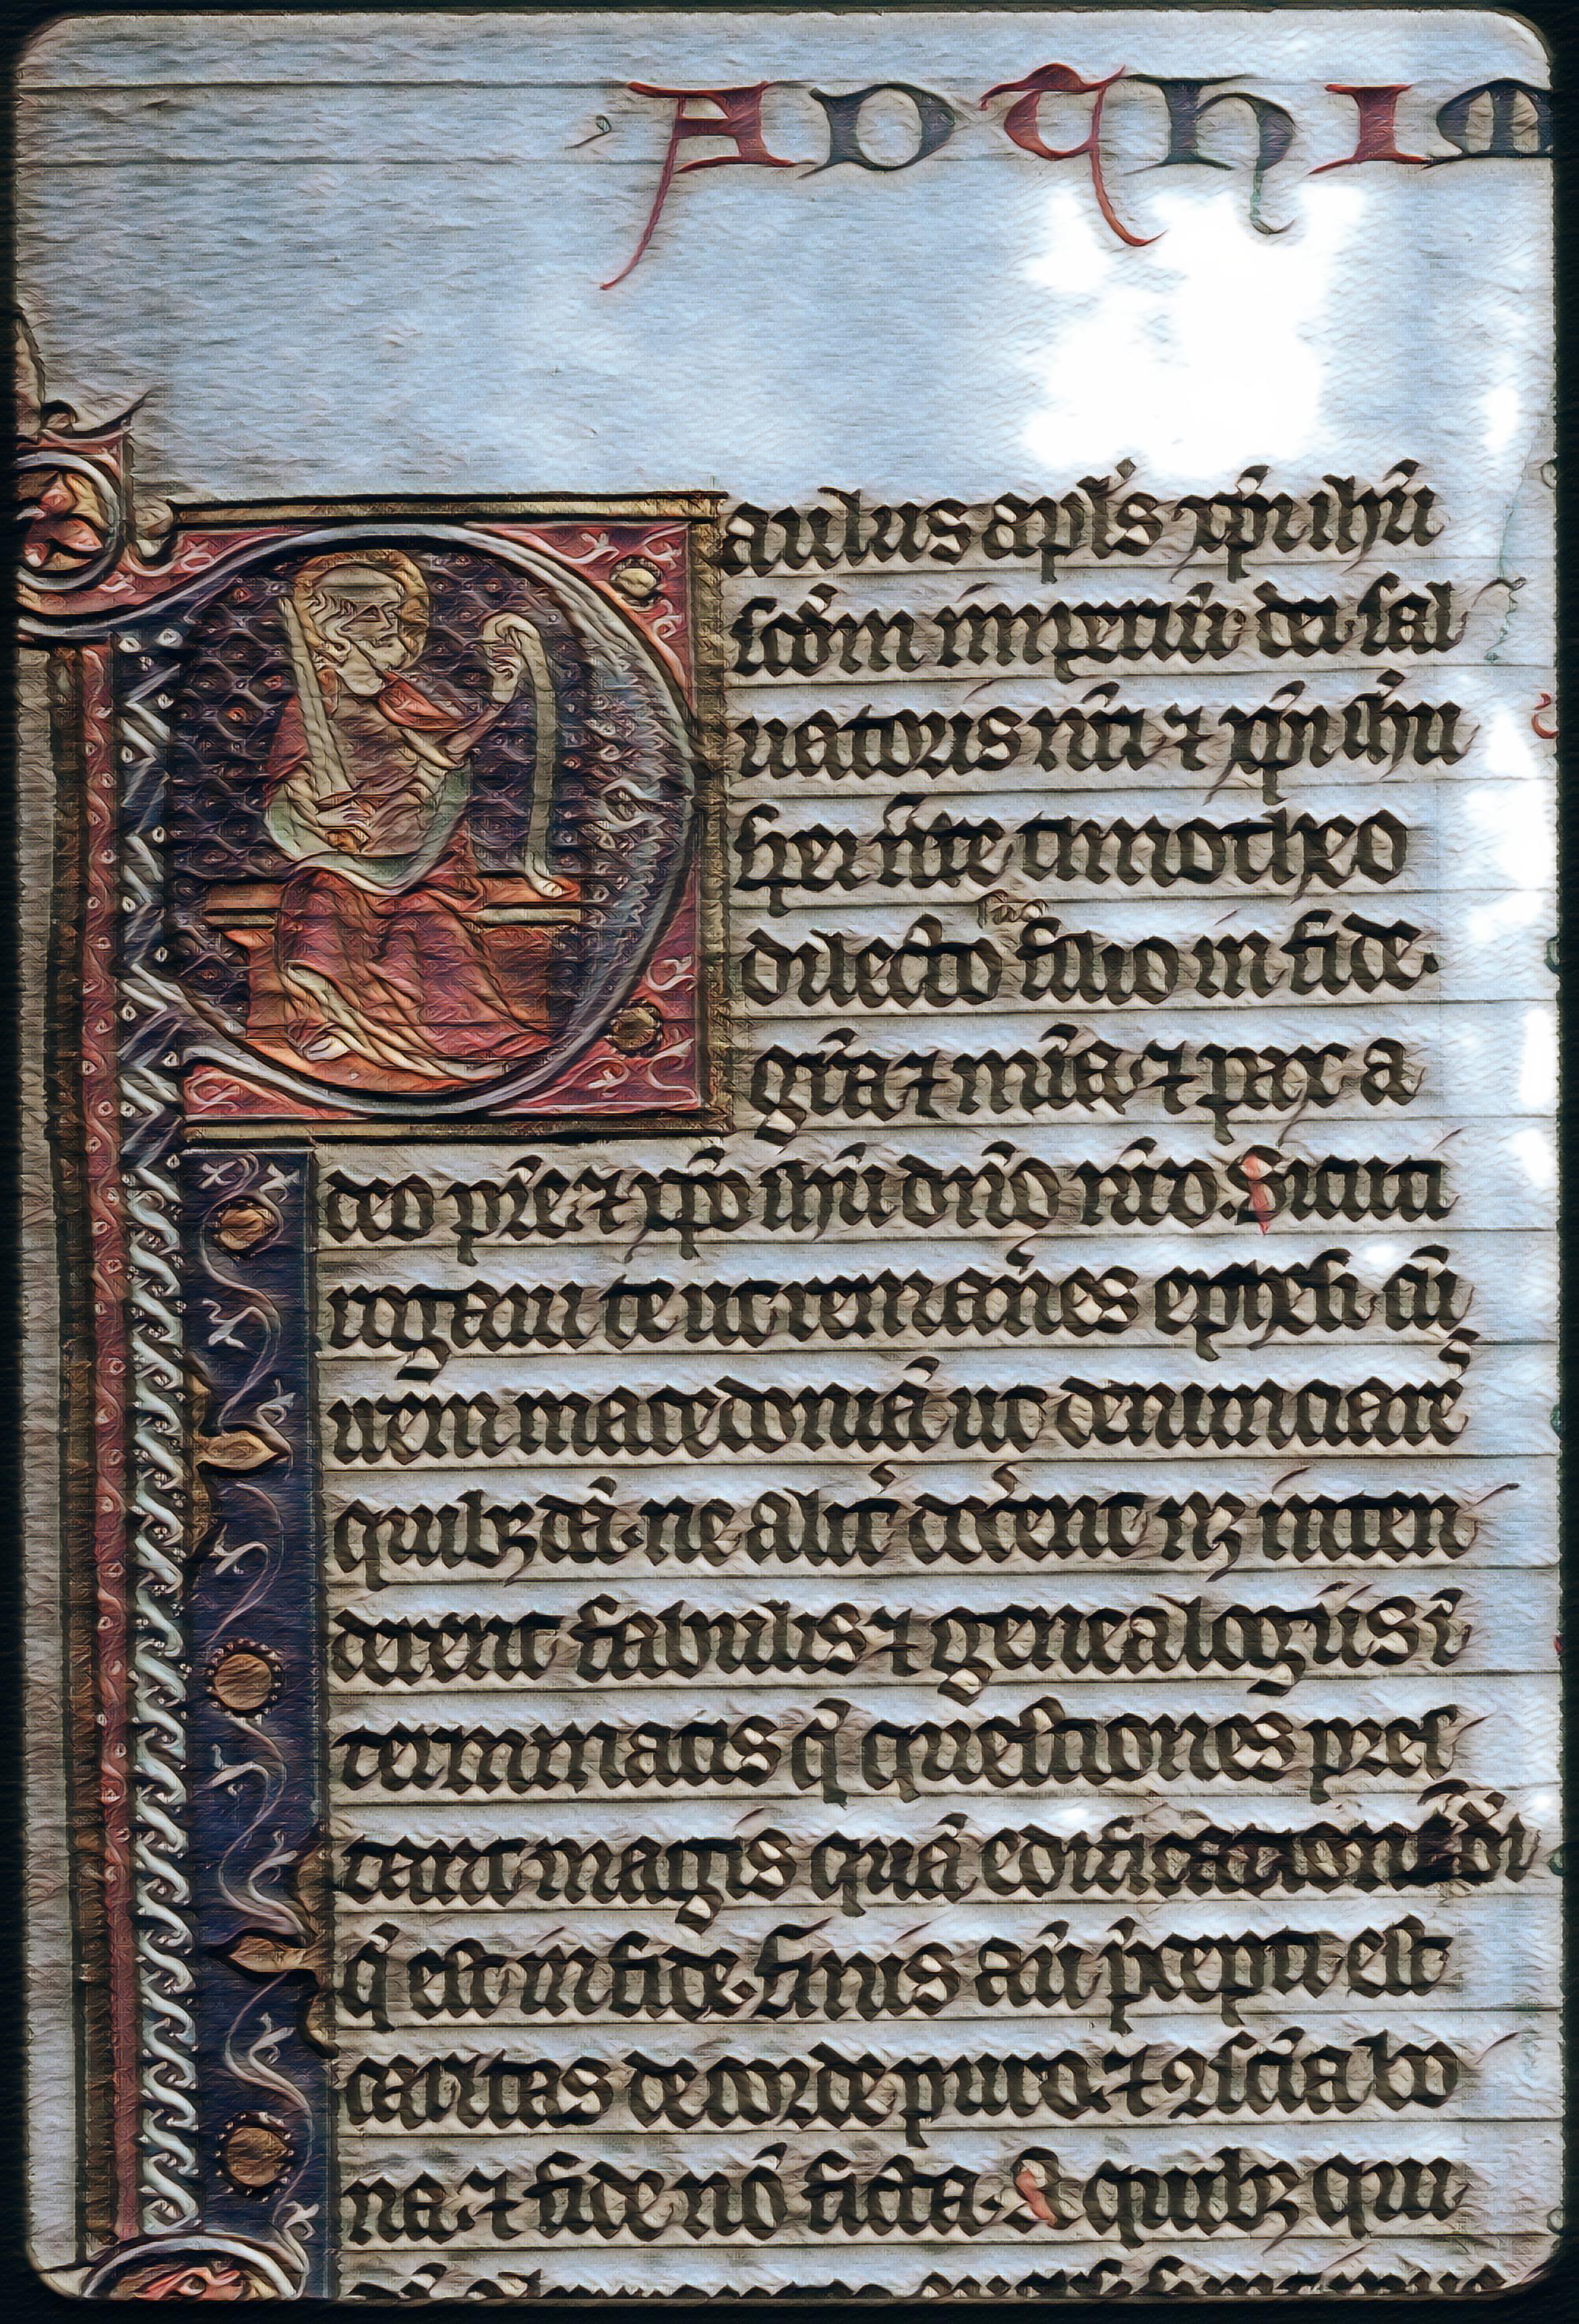 AD THIM
Paulus apl's xp̄i ihū
scd'm īmꝑiū dei sal
uatoris nr̄i ⁊ xp̄i ihū
spei nr̄e timotheo
dilecto filio in fide.
gr̄a ⁊ mīa ⁊ pax a
deo pr̄e ⁊ xp̄o ihū dn̄o nr̄o. Sicut
rogaui te ut remaneres ephesi cū
irem macedoniā ut denunciares
quibꝫdā. ne alit̄ docerent nꝫ inten
derent fabulis ⁊ genealogiis ī
terminatis q̄ questiones pres
tant magis quā edificationē di
q̄ est in fide. Finis aū p̄cepti est
caritas de corde puro. ⁊ ꝯscīa bo
na ⁊ fide nō ficta. A quibꝫ qui